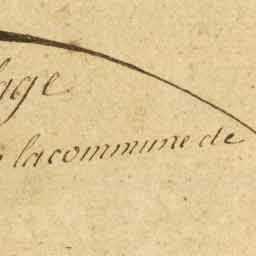 lage
la commune de